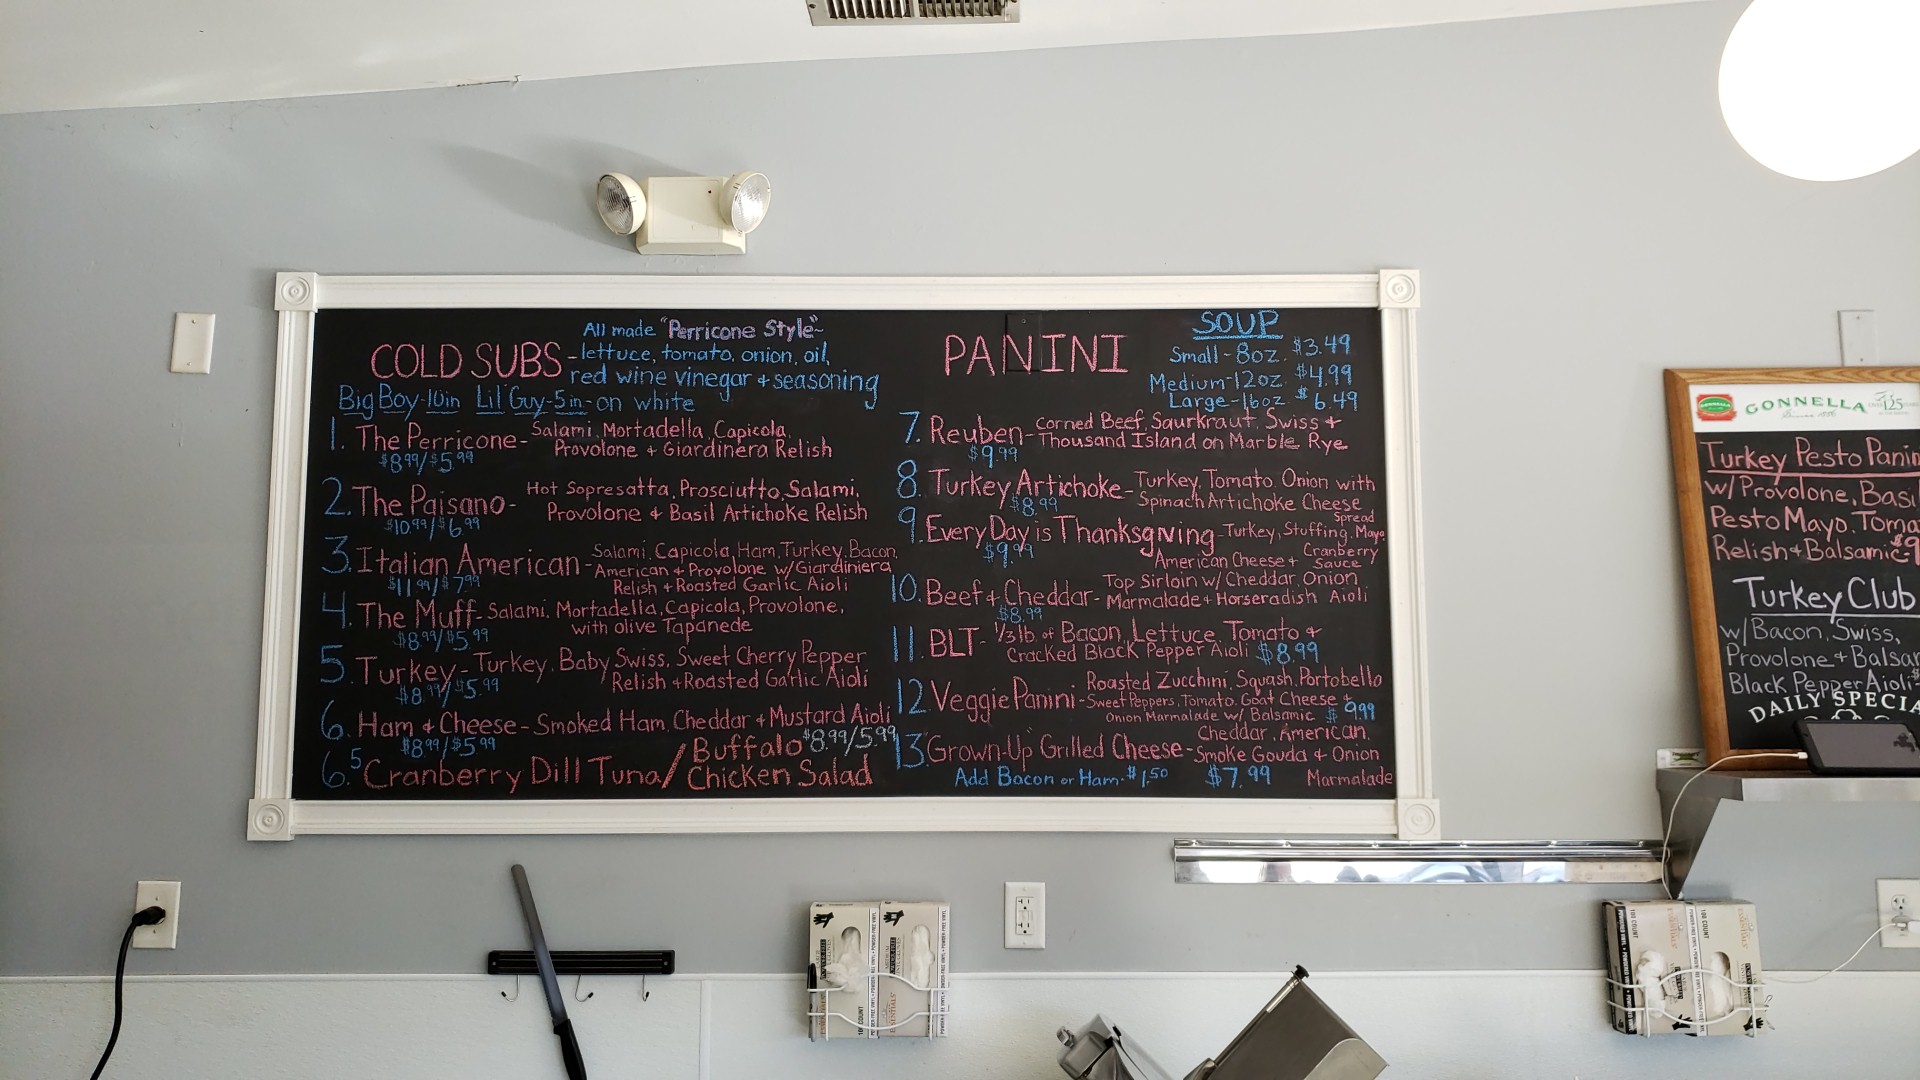 All made "Perricone Style"~
COLD SUBS - lettuce, tomato, onion, oil,
red wine vinegar + seasoning
Big Boy-10in Lil' Guy-5in-on white
1. The Perricone - Salami, Mortadella, Capicola,
Provolone + Giardinera Relish
$8.99/$5.99
2. The Paisano - Hot Sopresatta, Prosciutto, Salami,
Provolone & Basil Artichoke Relish
$10.99/$6.99
3. Italian American - Salami, Capicola, Ham, Turkey, Bacon,
American + Provolone w/Giardiniera
Relish + Roasted Garlic Aioli
$11.99/$7.99
4. The Muff - Salami, Mortadella, Capicola, Provolone,
with olive Tapanede
$8.99/$5.99
5. Turkey - Turkey, Baby Swiss, Sweet Cherry Pepper
Relish + Roasted Garlic Aioli
$8.99/$5.99
6. Ham & Cheese - Smoked Ham, Cheddar + Mustard Aioli
$8.99/$5.99
6.5 Cranberry Dill Tuna/Buffalo Chicken Salad $8.99/5.99
PANINI
SOUP
Small - 8oz. $3.49
Medium-12oz. $4.99
Large-16oz $6.49
7. Reuben - Corned Beef, Saurkraut, Swiss +
Thousand Island on Marble Rye
$9.99
8. Turkey Artichoke - Turkey, Tomato, Onion with
Spinach Artichoke Cheese
Spread
$8.99
9. EveryDay is Thanksgiving - Turkey, Stuffing, Mayo,
American Cheese + Cranberry
Sauce
$9.99
10. Beef & Cheddar - Top Sirloin w/ Cheddar, Onion
Marmalade + Horseradish Aioli
$8.99
11. BLT - 1/3 lb. of Bacon, Lettuce, Tomato +
Cracked Black Pepper Aioli $8.99
12 Veggie Panini - Roasted Zucchini, Squash, Portobello
Sweet Peppers, Tomato, Goat Cheese +
Onion Marmalade w/ Balsamic $9.99
13. "Grown-Up" Grilled Cheese - Cheddar, American,
Smoke Gouda + Onion
Marmalade
Add Bacon or Ham - $1.50 $7.99
GONNELLA
Since 1886
125
Turkey Pesto Panin
w/Provolone, Basil
Pesto Mayo, Toma
Relish + Balsamic $9
Turkey Club
w/Bacon, Swiss,
Provolone + Balsam
Black Pepper Aioli - $
DAILY SPECIA
100 COUNT
100 COUNT
100 COUNT